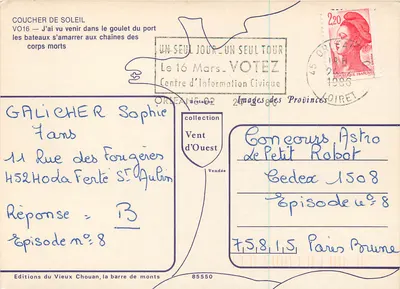 COUCHER DE SOLEIL
VO16 — J'ai vu venir dans le goulet du port
les bateaux s'amarrer aux chaînes des
corps morts
UN SEUL JOUR . UN SEUL TOUR
Le 16 Mars . VOTEZ
Centre d'Information Civique
2,20
45
LOIRET
1986
Images des Provinces
GALICHER Sophie
7ans
11 Rue des Fougères
45240 La Ferté St Aubin
Réponse = B
Episode n° 8
collection
Vent
d'Ouest
Vendée
Concours Astro
Le Petit Robot
Cedex 1508
Episode n° 8
7,5,8,1,5, Paris Brune
Editions du Vieux Chouan, la barre de monts
85550